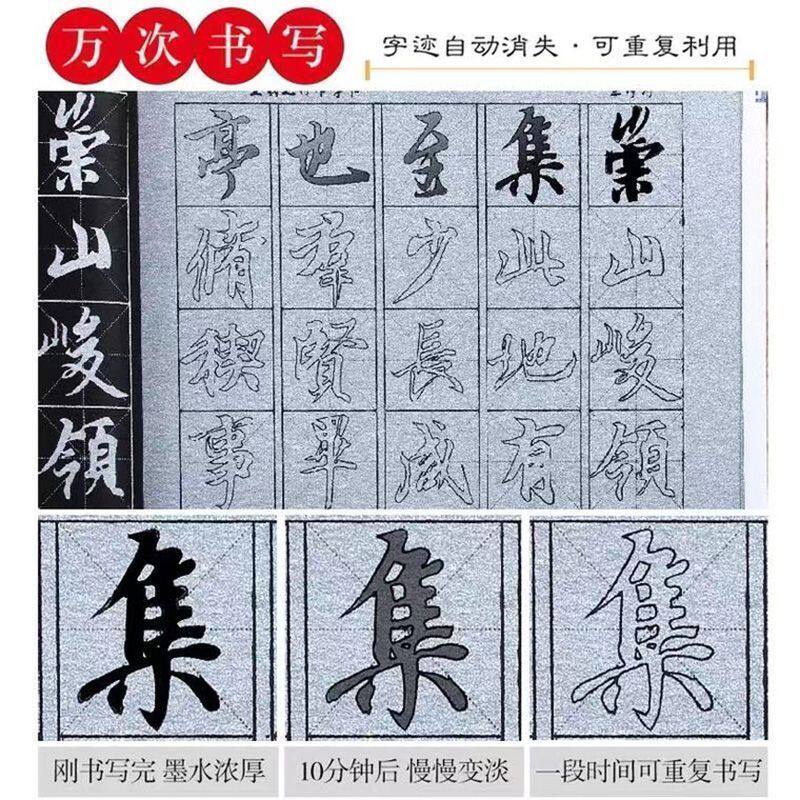 万次书写
字迹自动消失·可重复利用
崇山峻領
崇山峻領
集此地有
至少長咸
也羣賢畢
亭脩禊事
集
集
集
刚书写完 墨水浓厚
10分钟后 慢慢变淡
一段时间可重复书写